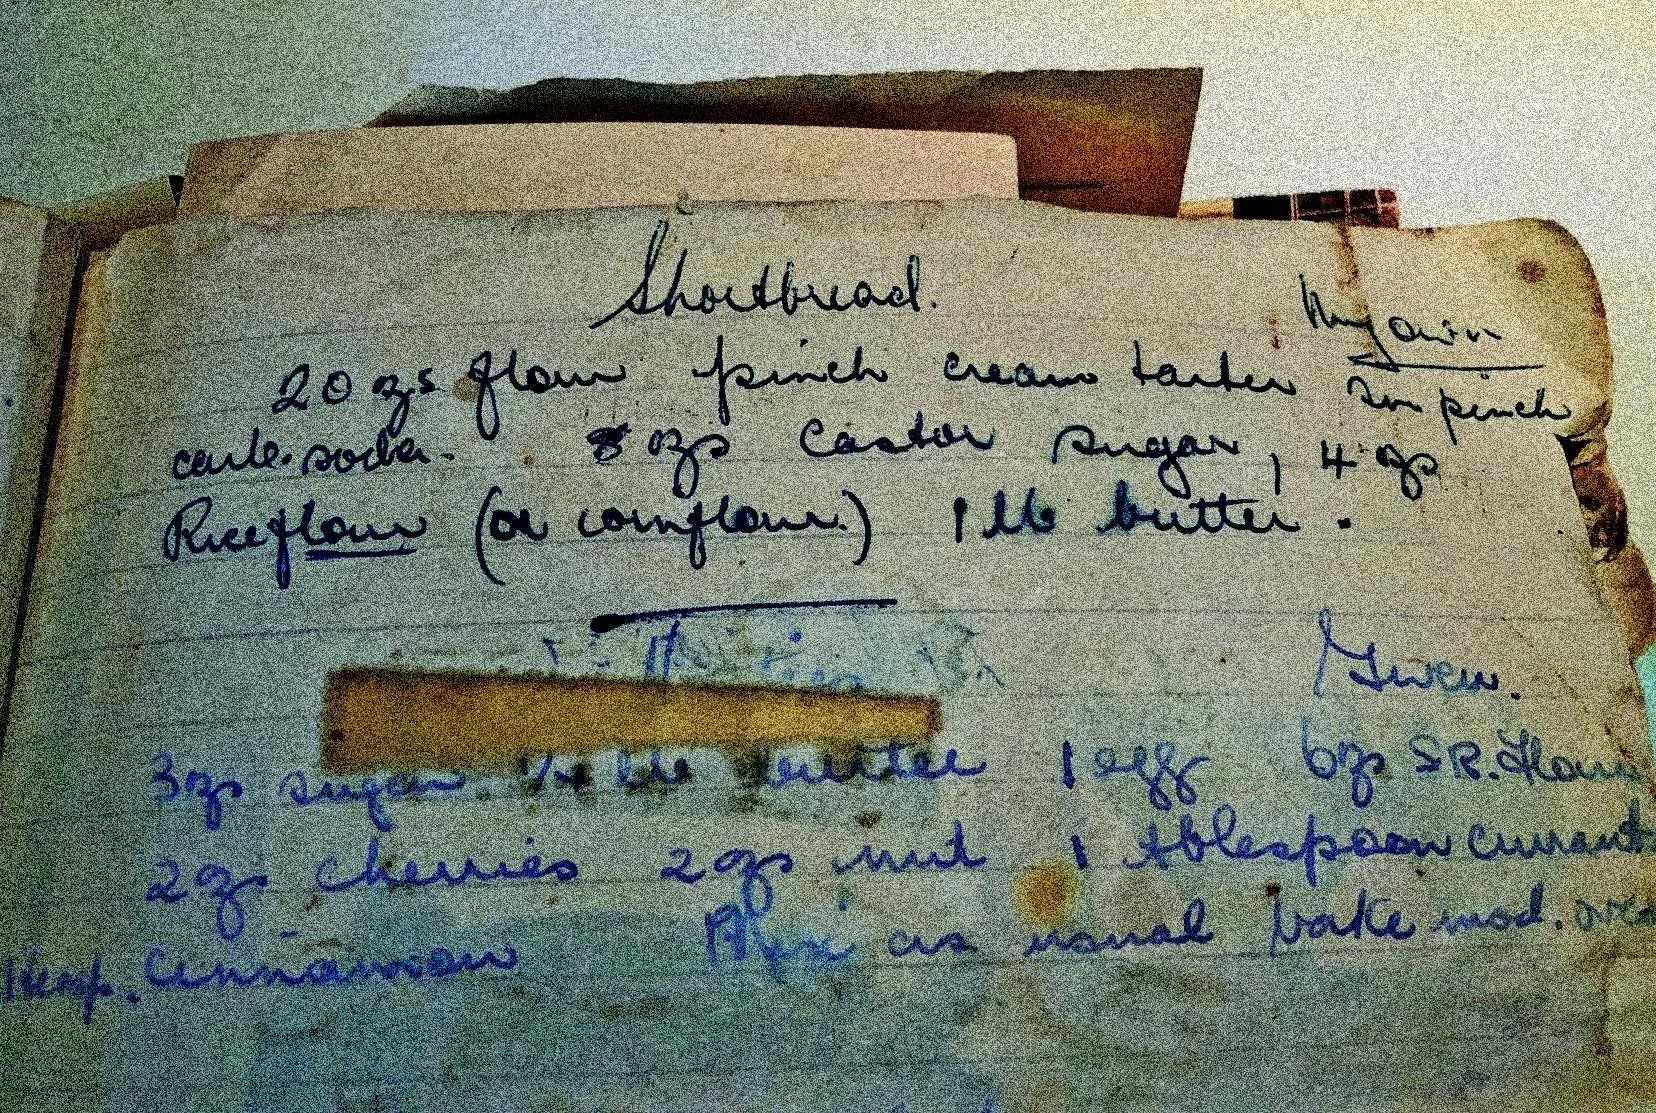 Shortbread.
My own
20 ozs flour pinch cream tarter Sm pinch
carb. soda. 8 ozs Castor sugar, 4 ozs
Riceflour (or cornflour.) 1 lb butter.
Gwen.
3ozs sugar 1/4 lb butter 1 egg 6ozs SR. Flour
2ozs cherries 2 ozs nut 1 tblespoon currants
1teasp. Cinnamon Mix as usual bake mod. oven